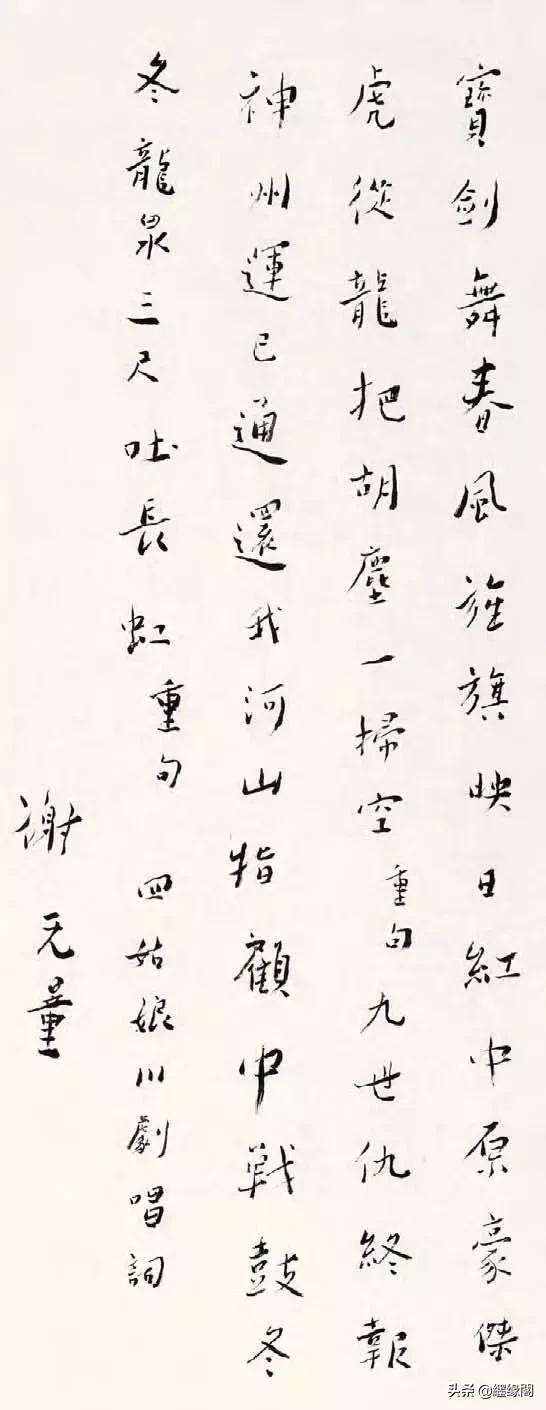 寶劍舞春風旌旗映日紅中原豪傑
虎從龍把胡塵一掃空重句九世仇終報
神州運已通還我河山指顧中戰鼓冬
冬龍泉三尺吐長虹重句 四姑娘川劇唱詞
謝无量
头条 @纒缘閣